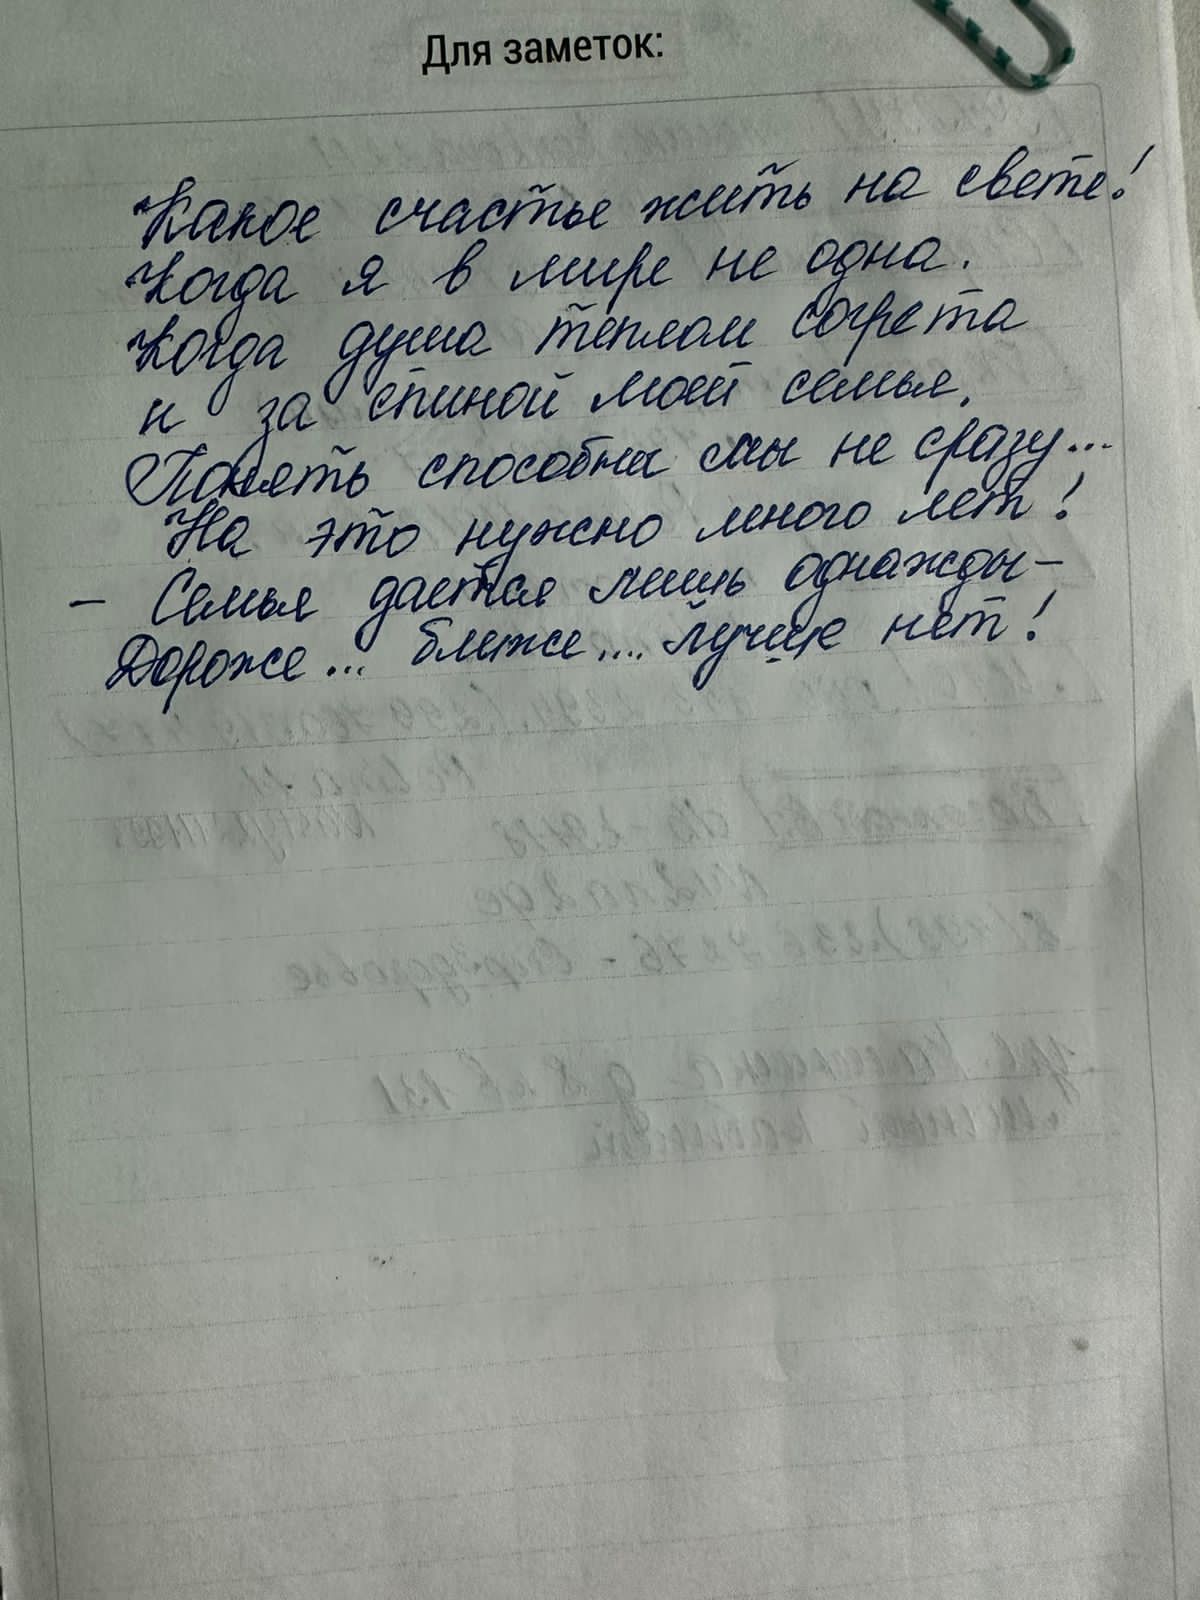 Для заметок:
Какое счастье жить на свете!
Когда я в мире не одна.
Когда душа теплом согрета
и за спиной моей семья.
Понять способны мы не сразу...
На это нужно много лет!
– Семья дается лишь однажды –
Дороже... ближе.... лучше нет!